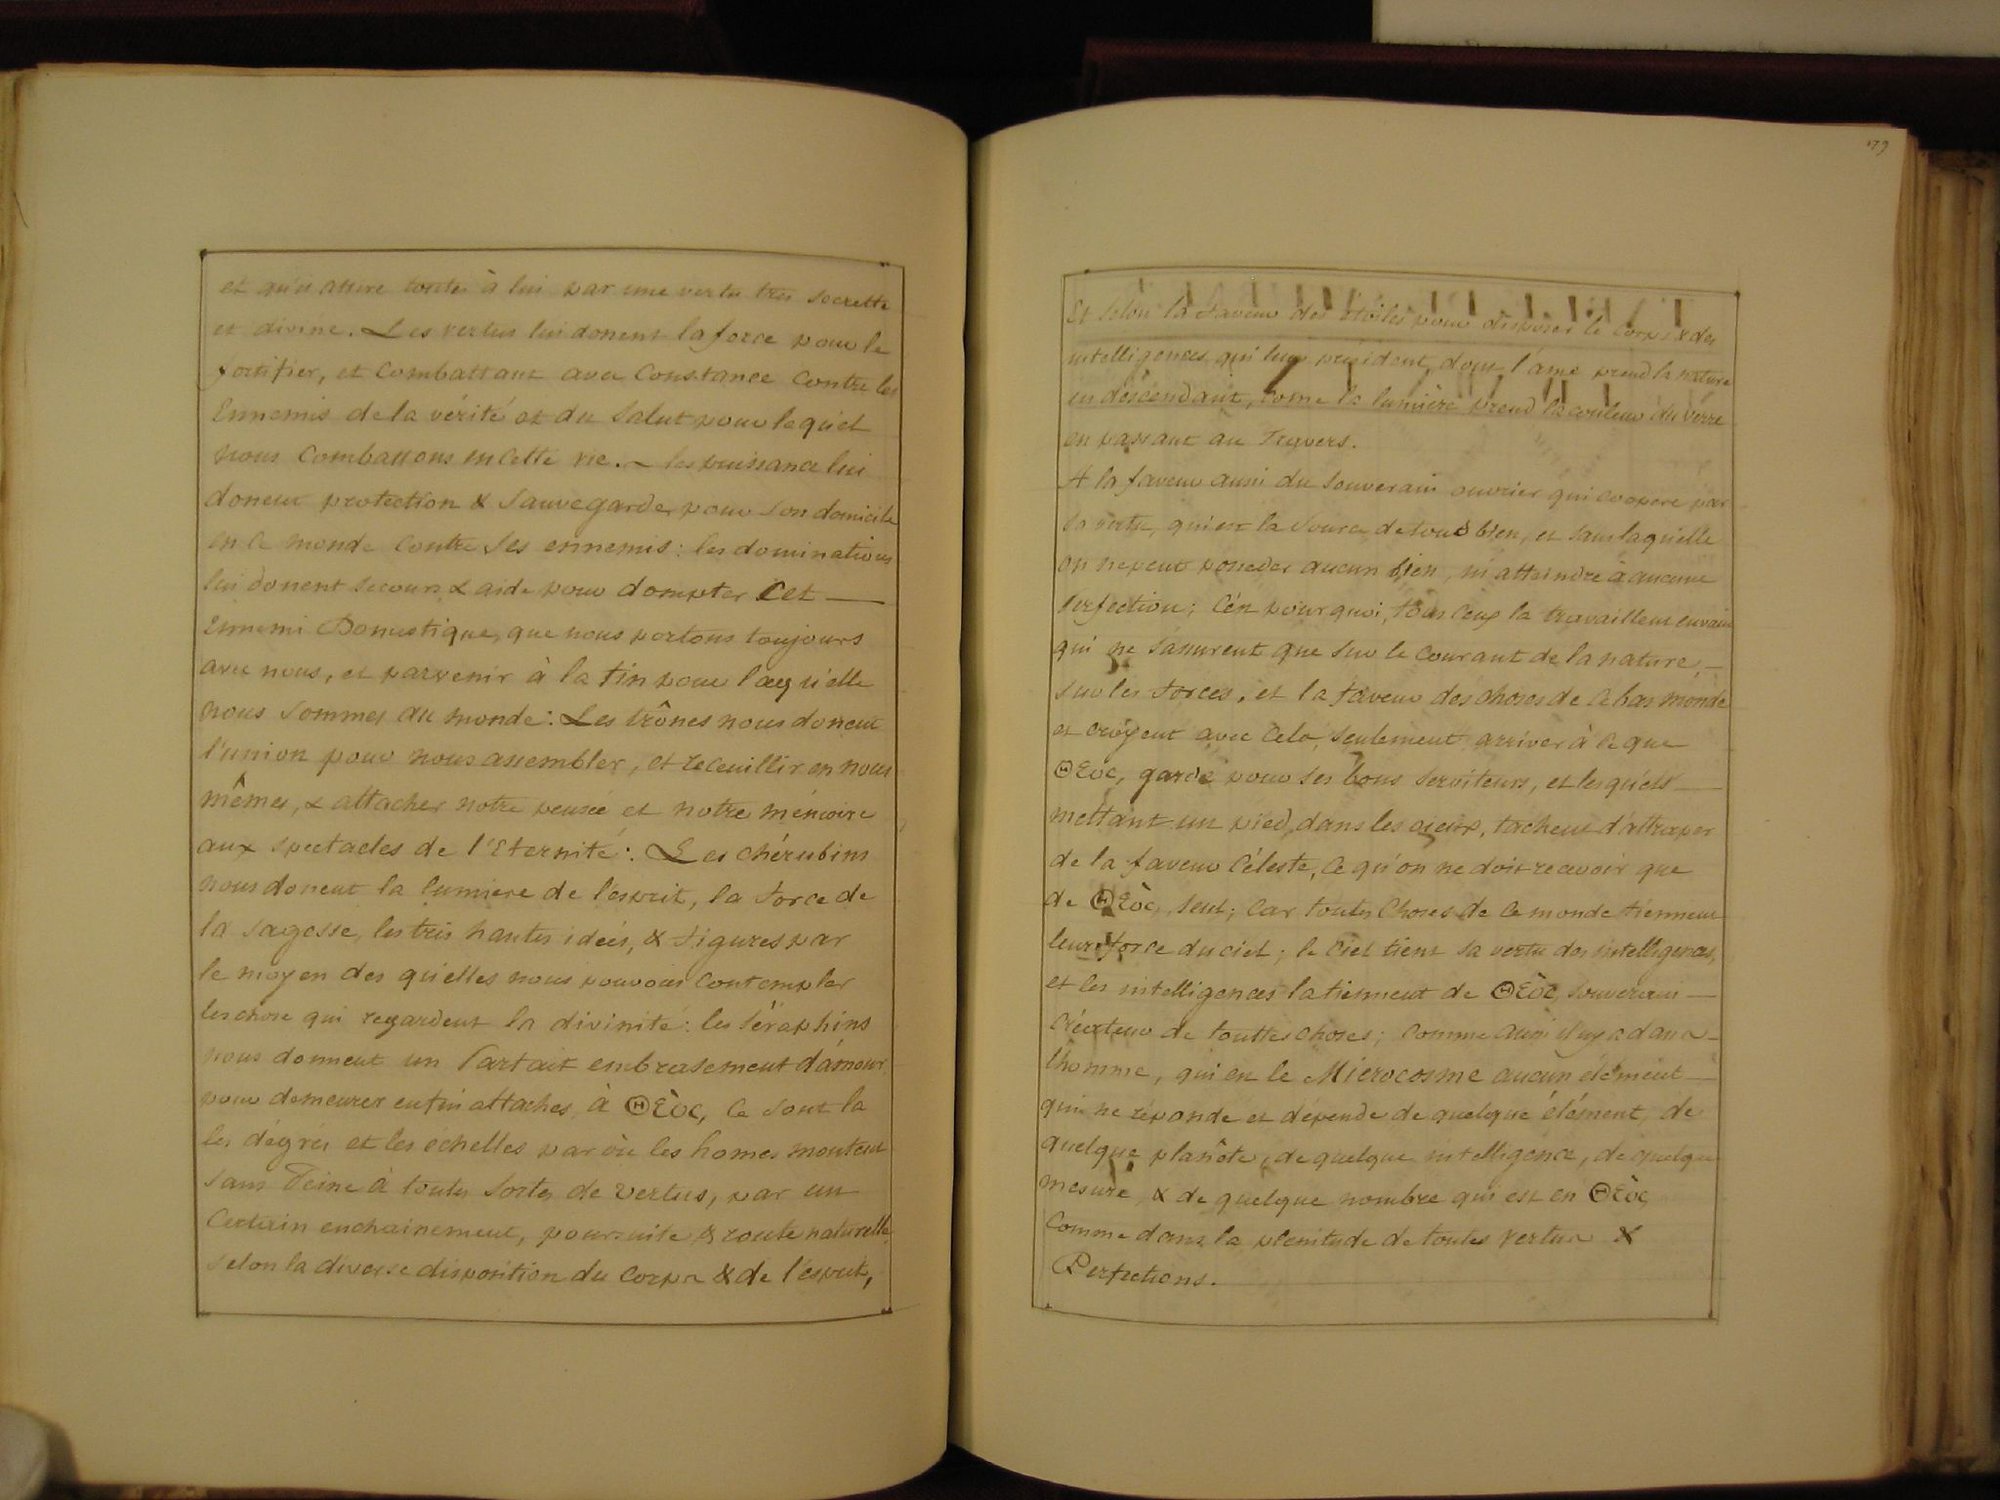 et qu'il attire toutes à lui par une vertu très secrette
et divine. Les vertus lui donent la force pour le
fortifier, et Combattant avec Constance Contre les
Ennemis de la vérité et du Salut pour lequél
nous Combattons en Cette vie. ~ les puissance lui
donent protection & Sauvegarde, pour son domicile
en ce monde contre ses ennemis: les dominations
lui donent secours & aide pour dompter Cet —
Ennemi Domestique, que nous portons toujours
avec nous, et parvenir à la fin pour laquélle
nous sommes au monde: Les trônes nous donent
l'union pour nous assembler, et receuillir en nous
mêmes, & attacher notre pensée et notre mémoire
aux spectacles de l'Eternité: Les chérubins
nous donent la lumiere de l'esprit, la force de
la sagesse, les tres hautes idées, & figures par
le moyen des quélles nous pouvons Contempler
les chose qui regardent la divinité: les Séraphins
nous donnent un Parfait embrasement d'ámour
pour demeurer enfin attaches, à Θεὸς, Ce sont la
les dégrés et les échelles par où les homes montent
sans Peine à toutes sortes de vertus, par un
Certain enchainement, poursuite & route naturelle,
selon la diverse disposition du Corps & de l'esprit,
179
Et selon la faveur des étoiles pour disposer le corps & des
intelligences qui leur président, dont l'âme prend la nature
en descendant, come la lumiere prend la couleur du verre
en passant au Travers.
A la faveur aussi du Souverain ouvrier qui coopere par
sa vertu, qui est la Source de tous bien, et sans laquélle
on ne peut posseder aucun bien, ni atteindre à aucune
perfection; C'est pourquoi, tous ceux la travaillent en vain
qui ne s'assurent que sur le Courant de la nature, —
sur les forces, et la faveur des choses de ce bas monde
et croÿent avec cela, seulement arriver à ce que
Θεὸς, garde pour ses bons serviteurs, et lesquéls —
mettant un pied, dans les cieux, tachent d'attraper
de la faveur Céleste, Ce qu'on ne doit recevoir que
de Θεὸς, seul; Car toutes Choses de Ce monde tiennent
leur force du ciel; le Ciel tient sa vertu des intelligences,
et les intelligences la tiennent de Θεὸς, souverain —
Créateur de touttes choses; Comme aussi il n'y a dans —
l'homme, qui est le Microcosme aucun élément —
qui ne réponde et dépende de quelque élément, de
quelque planête, de quelque intelligence, de quelque
mesure, & de quelque nombre qui est en Θεὸς,
Comme dans la plenitude de toutes vertus &
Perfections.